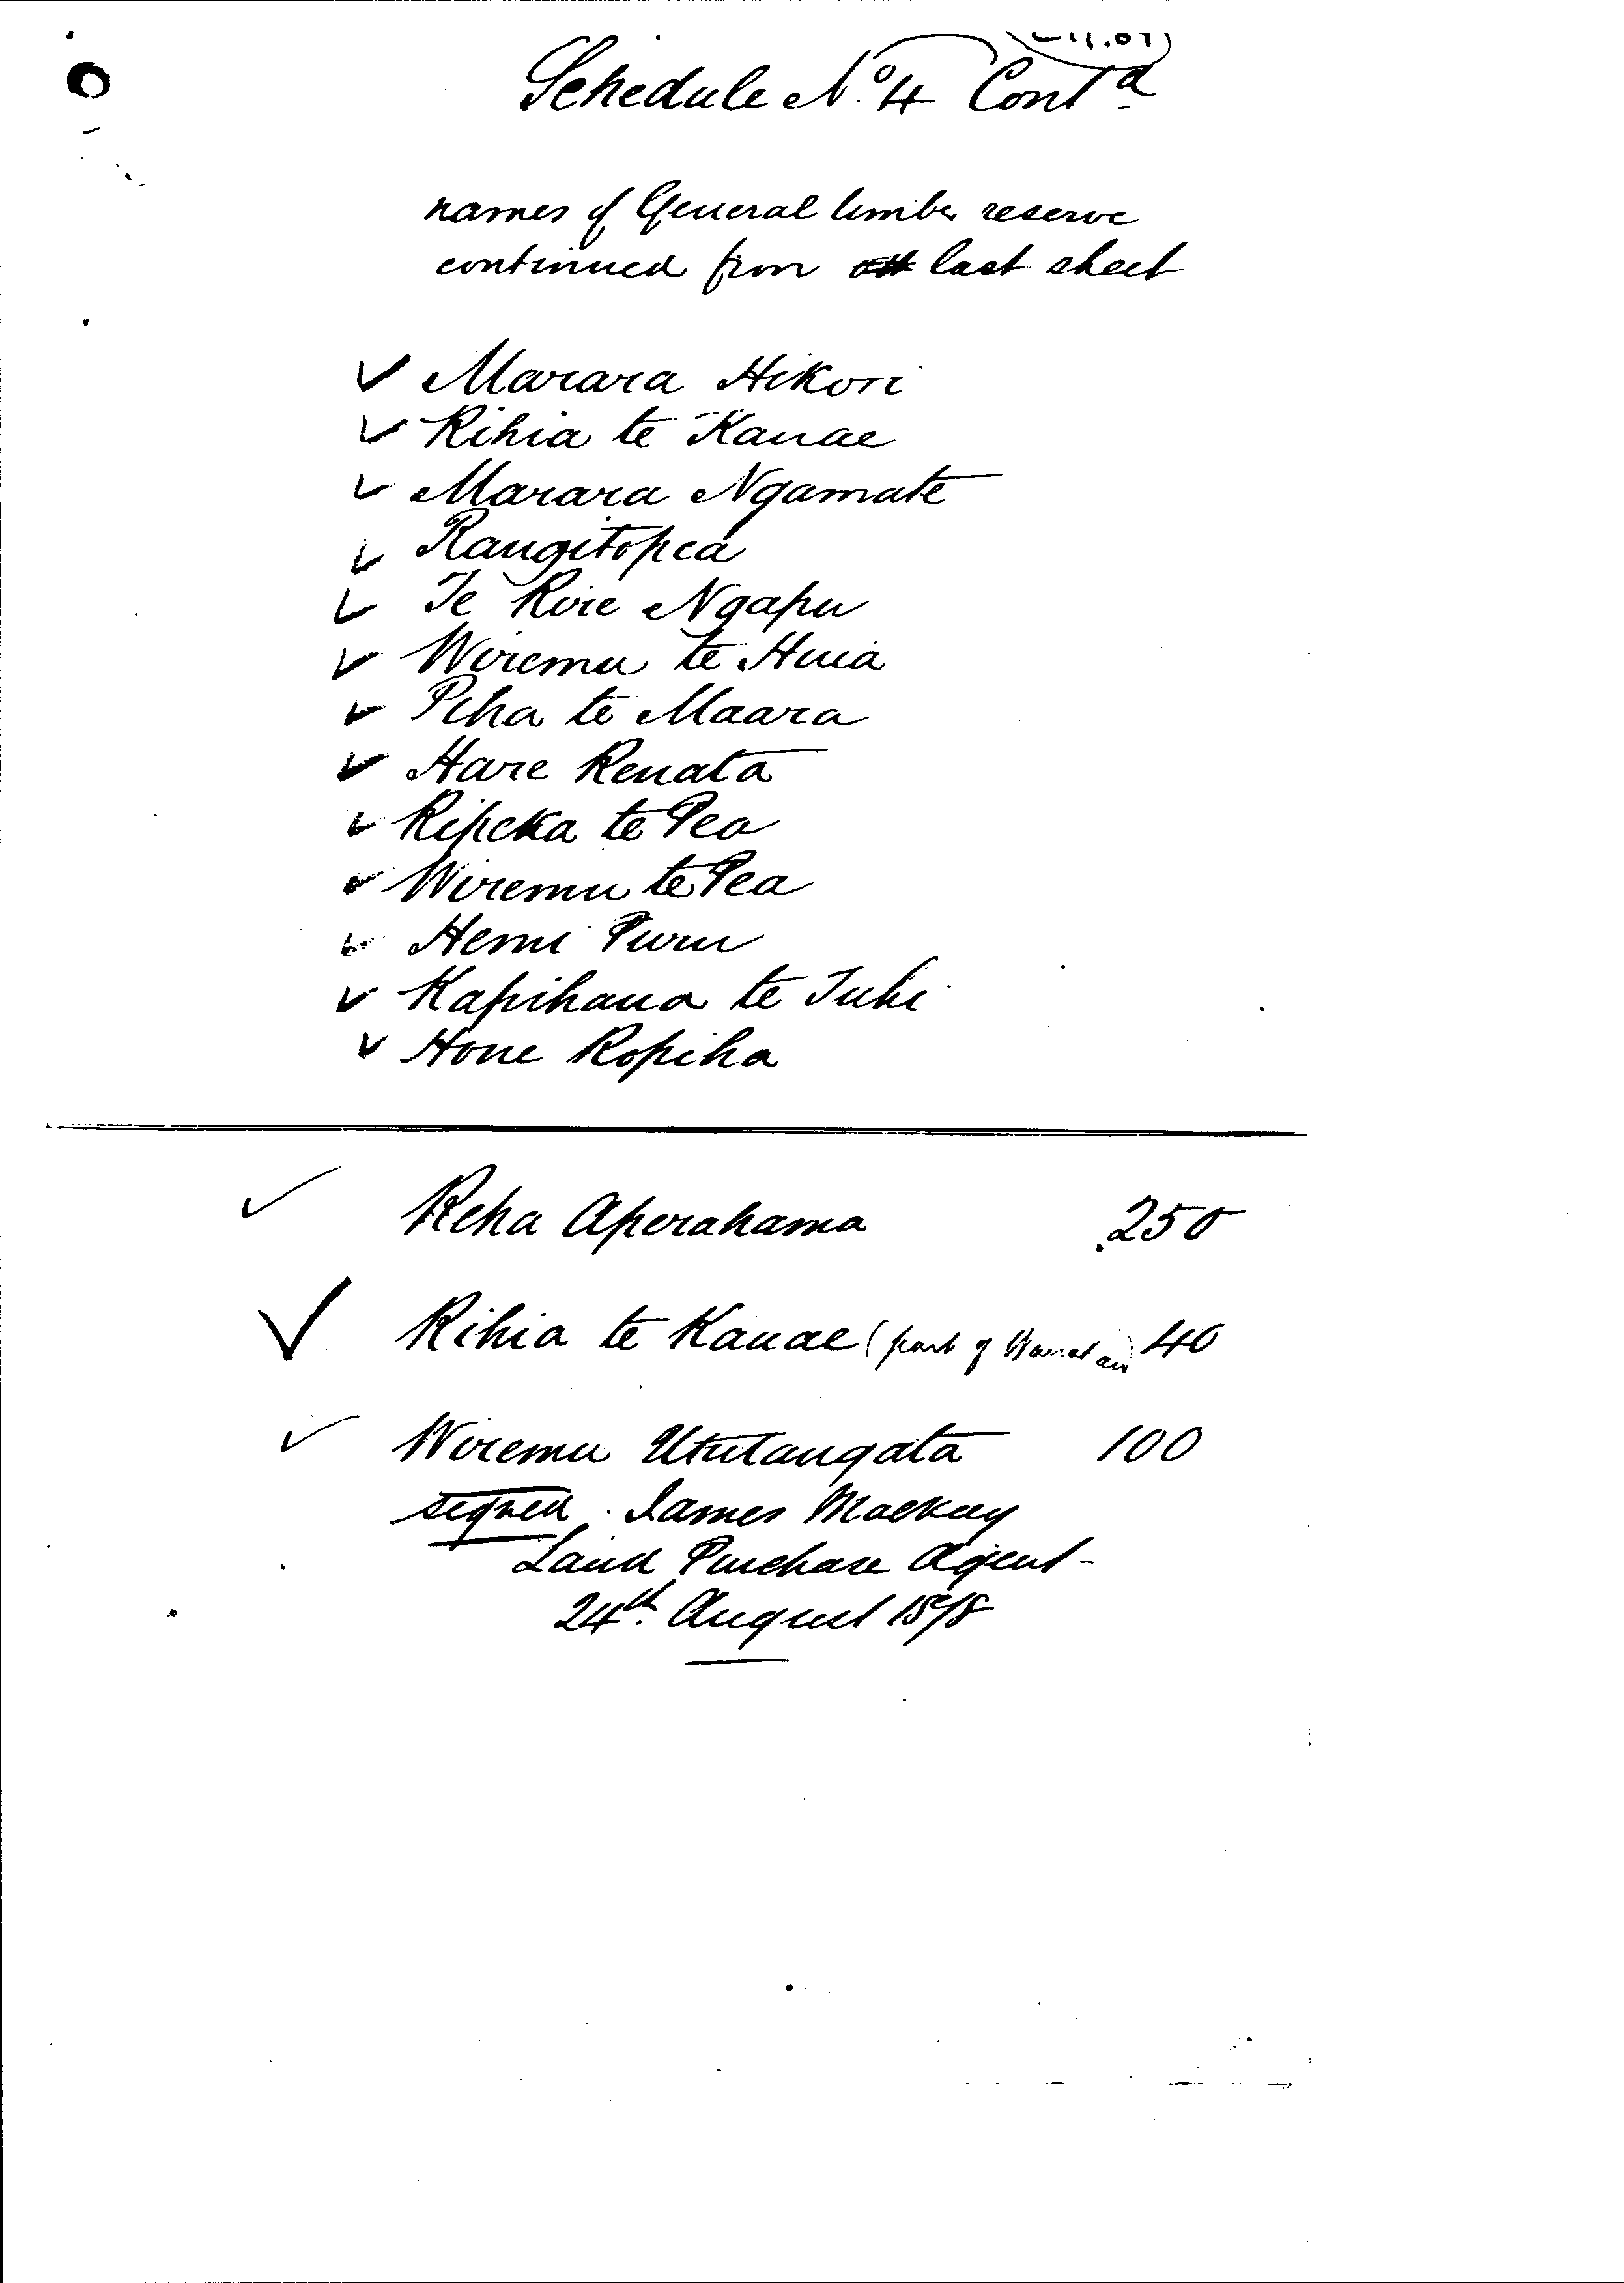 Schedule No. 4 Contd
names of General timber reserve
continued from last sheet
✓ Marara Hikori
✓ Rihia te Kanae
✓ Marara Ngamate
✓ Rangitopea
✓ Te Roie Ngapu
✓ Wiremu te Huia
✓ Piha te Maara
✓ Hare Renata
✓ Ripeka te Pea
✓ Wiremu te Pea
✓ Hemi Puru
✓ Kapihana te Tuhi
✓ Hone Ropiha
✓ Reha Aperahama 250
✓ Rihia te Kanae (part of 40
✓ Wiremu Ututangata 100
signed. James Mackay
Land Purchase Agent-
24th August 1878